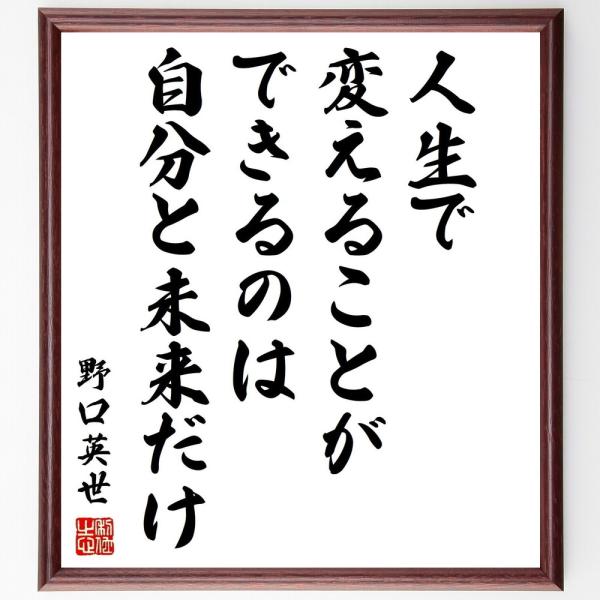 人生で
変えることが
できるのは
自分と未来だけ
野口英世